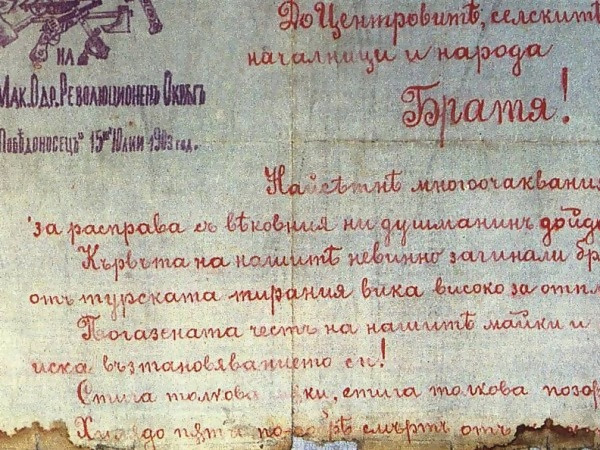 НА
МАК. ОДР. РЕВОЛЮЦИОНЕНЪ ОКРѪГЪ
ПОБѢДОНОСЕЦЪ" 15ий ЮЛИИ 1903 год.
До Центровитѣ, селскитѣ
началници и народа
Братя!
Найсѣтнѣ многоочаквания
за расправа съ вѣковния ни душманинъ дойде
Кървъта на нашитѣ невинно загинали бр
отъ турската тирания вика високо за отпл
Погазената честь на нашитѣ майки и
иска възтановяванието си!
Стига толкова ки, стига толкова позор
пѫти смърть отъ